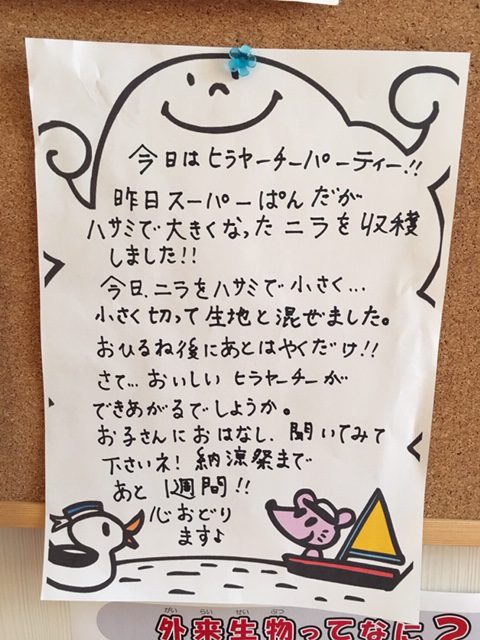 今日はヒラヤーチーパーティー!!
昨日スーパーぱんだが
ハサミで大きくなったニラを収穫
しました!!
今日、ニラをハサミで小さく...
小さく切って生地と混ぜました。
おひるね後にあとはやくだけ!!
さて...おいしい ヒラヤーチーが
できあがるでしょうか。
お子さんにおはなし、聞いてみて
下さいネ! 納涼祭まで
あと 1週間!!
心おどり
ます♪
がい らい せい ぶつ
外来生物ってなに?